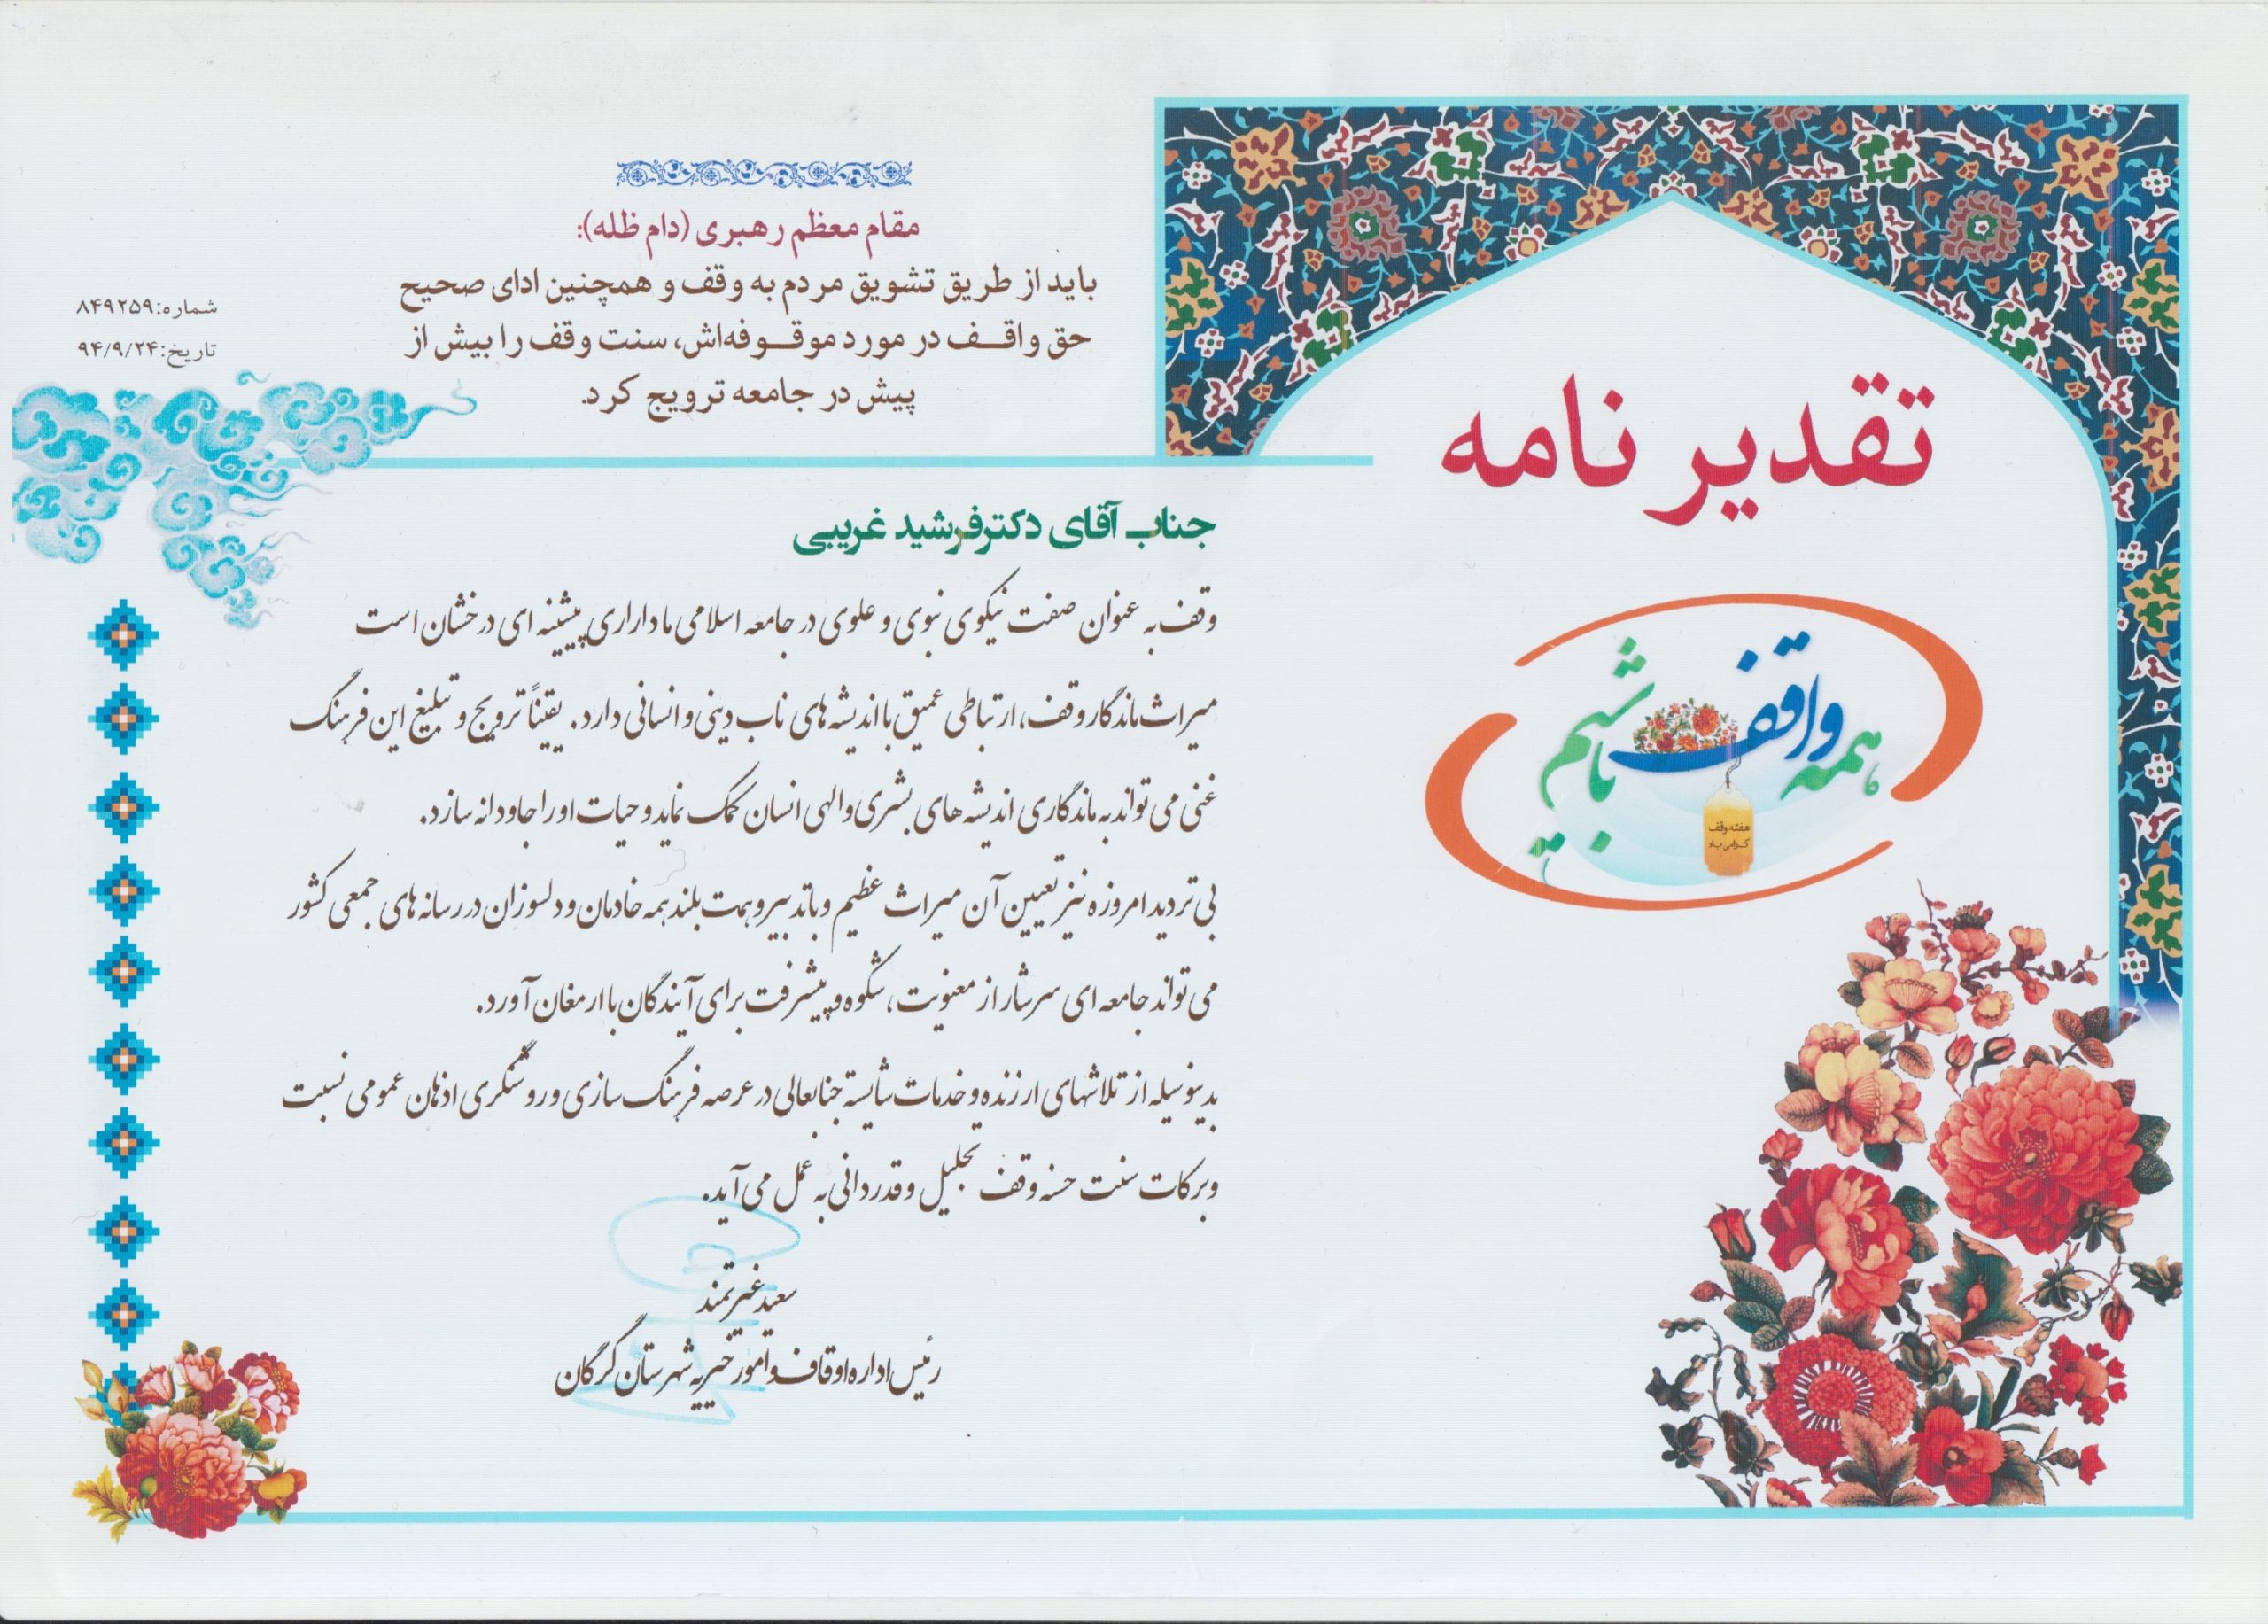 مقام معظم رهبری (دام ظله):
باید از طریق تشویق مردم به وقف و همچنین ادای صحیح
حق واقف در مورد موقوفه‌اش، سنت وقف را بیش از
پیش در جامعه ترویج کرد.
شماره:۸۴۹۲۵۹
تاریخ:۹۴/۹/۲۴
تقدیر نامه
همه واقف باشیم
هفته وقف
گرامی باد
جناب آقای دکترفرشید غریبی
وقف به عنوان صفت نیکوی نبوی و علوی در جامعه اسلامی ما داراری پیشینه ای درخشان است
میراث ماندگار وقف، ارتباطی عمیق با اندیشه های ناب دینی و انسانی دارد. یقیناً ترویج و تبلیغ این فرهنگ
غنی می تواند به ماندگاری اندیشه های بشری و الهی انسان کمک نماید و حیات او را جاودانه سازد.
بی تردید امروزه نیز تعیین آن میراث عظیم و با تدبیر و همت بلند همه خادمان و دلسوزان در رسانه های جمعی کشور
می تواند جامعه ای سرشار از معنویت، شکوه و پیشرفت برای آیندگان با ارمغان آورد.
بدینوسیله از تلاشهای ارزنده و خدمات شایسته جنابعالی در عرصه فرهنگ سازی و روشنگری اذهان عمومی نسبت
و برکات سنت حسنه وقف تجلیل و قدردانی به عمل می آید.
سعید غیرتمند
رئیس اداره اوقاف و امور خیریه شهرستان گرگان